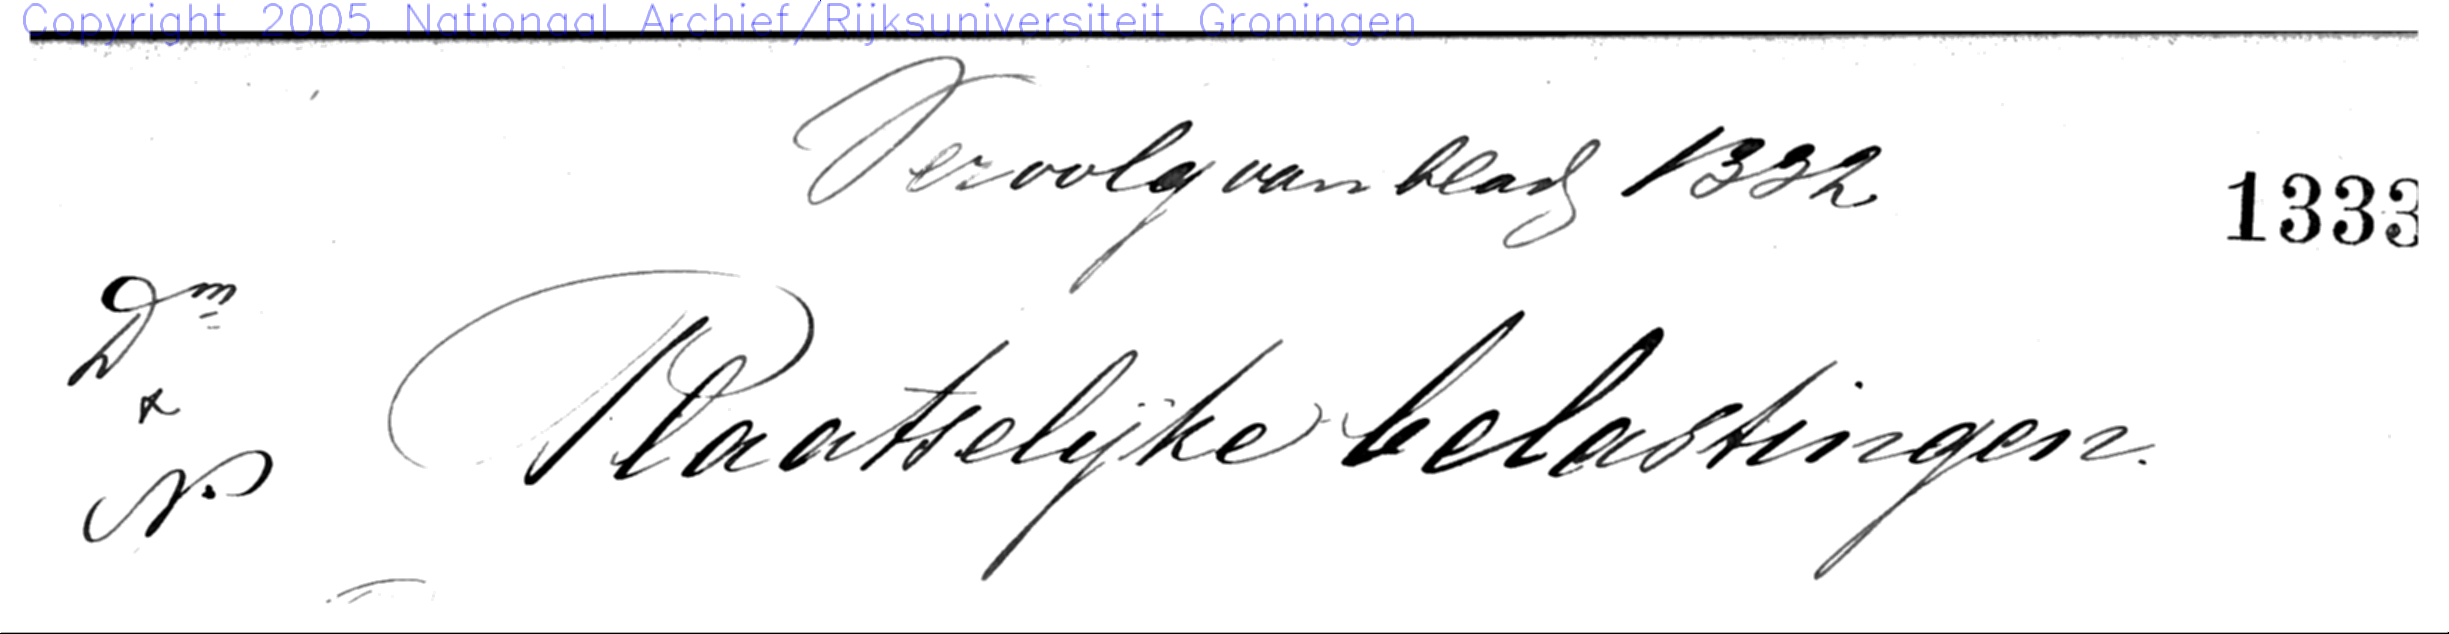 Copyright 2005 Nationaal Archief/Rijksuniversiteit Groningen
Vervolg van blad 1332
1333
Dm
Plaatselijke belastingen.
N.